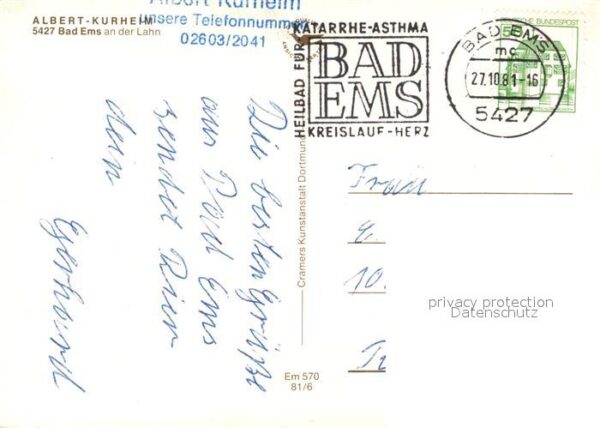 ALBERT-KURHEIM
5427 Bad Ems an der Lahn
Albert Kurheim
unsere Telefonnummer
02603/2041
HEILBAD FÜR
KATARRHE-ASTHMA
BAD
EMS
KREISLAUF-HERZ
BAD EMS
mc
27.10.81-16
5427
DEUTSCHE BUNDESPOST
50
Die besten Grüße
aus Bad Ems
sendet Dir
dein
Cramers Kunstanstalt Dortmund
Em 570
81/6
Frau
10.
privacy protection
Datenschutz